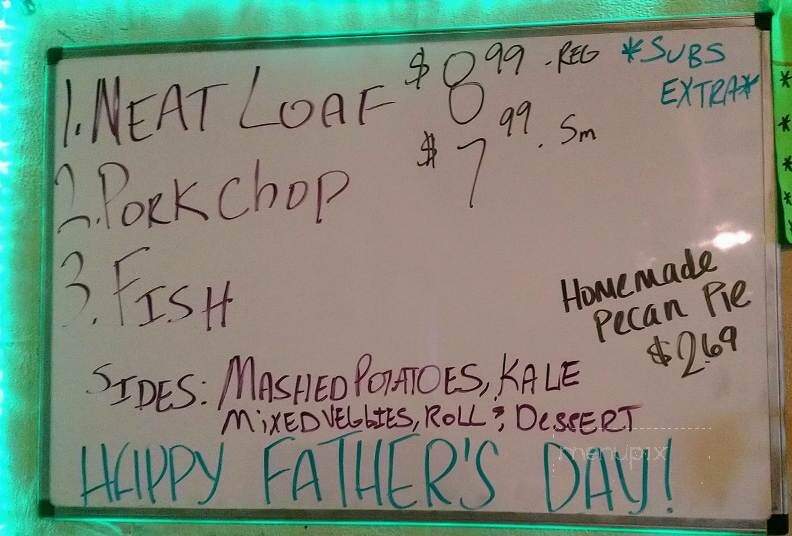 1. MEAT LOAF $8.99 - REG *SUBS EXTRA*
$7.99. Sm
2. PORK CHOP
3. FISH
Homemade
Pecan Pie
$2.69
SIDES: MASHED POTATOES, KALE
MIXED VEGGIES, ROLL & DESSERT
HAPPY FATHER'S DAY!
menupix